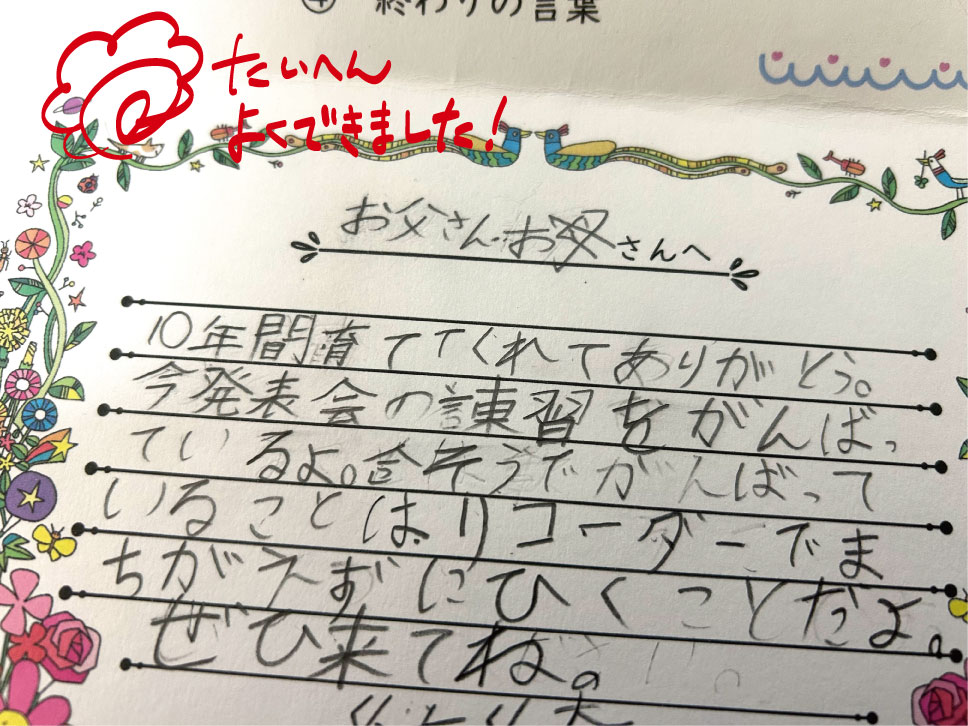 ④ 終わりの言葉
たいへん
よくできました!
お父さん・お母さんへ
10年間育ててくれてありがとう。
今発表会の練習をがんばっ
ているよ。合そうでがんばって
いることは、リコーダーでま
ちがえずにひくことだよ。
ぜひ来てね。